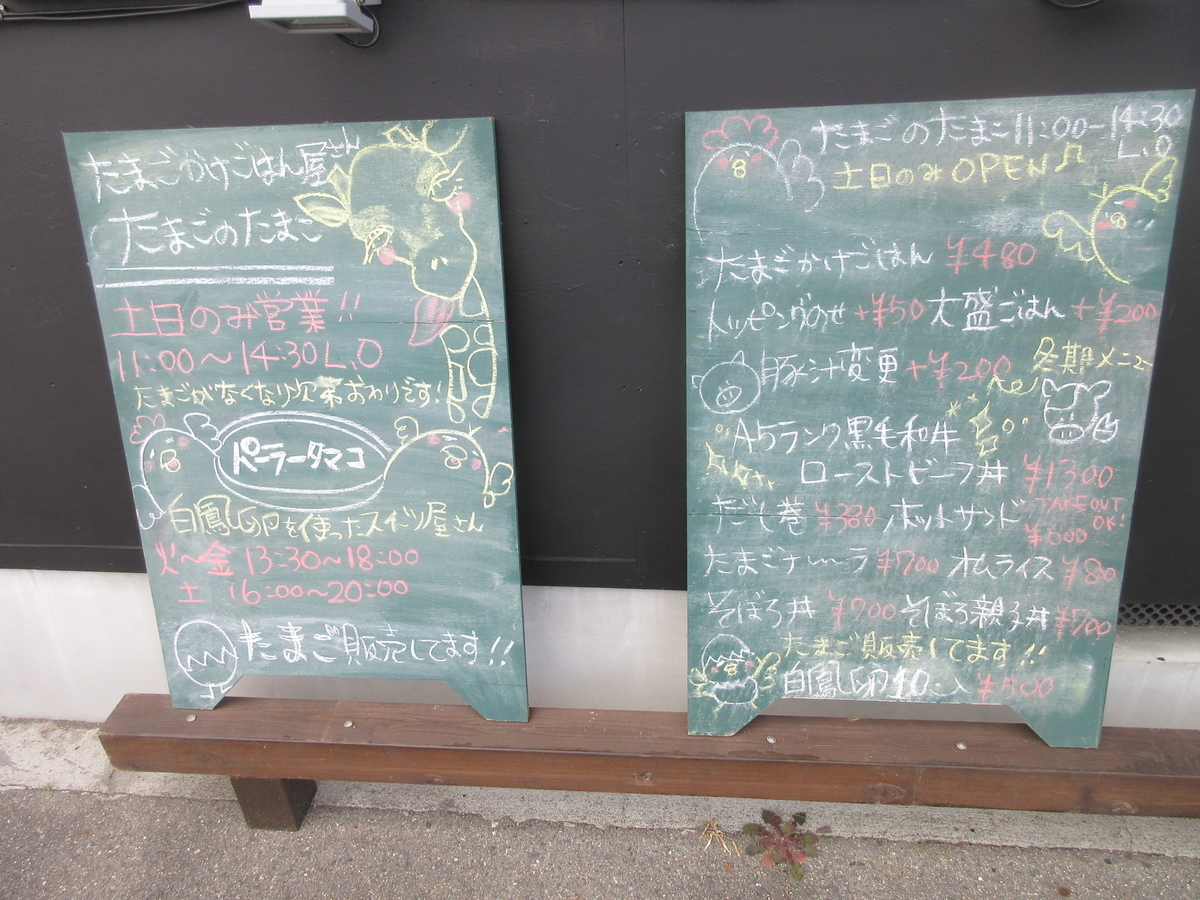 たまごかけごはん屋さん
たまごのたまご
土日のみ営業!!
11:00〜14:30 L.O
たまごがなくなり次第おわりです!
ペーラータマコ
白鳳卵を使ったスイーツ屋さん
火〜金 13:30〜18:00
土 16:00〜20:00
たまご販売してます!!
たまごのたまご 11:00〜14:30
L.O
土日のみOPEN♪
たまごかけごはん ¥480
トッピングのせ +¥50 大盛ごはん +¥200
豚汁変更 +¥200 冬期メニュー
A5ランク黒毛和牛
ローストビーフ丼 ¥1300
だし巻 ¥380 ホットサンド ¥600 TAKE OUT OK!
たまごチャーラ ¥700 オムライス ¥800
そぼろ丼 ¥700 そぼろ親子丼 ¥700
たまご販売してます!!
白鳳卵10コ入 ¥500